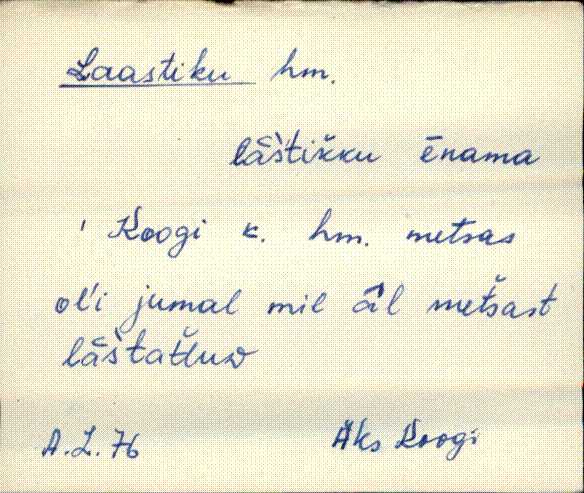 Laastiku hm.
lāštikku ēnama
' Koogi k. hm. metsas
ol'i jumal mil āl metsast
lāštattuD
A.L. 76 Äks Koogi